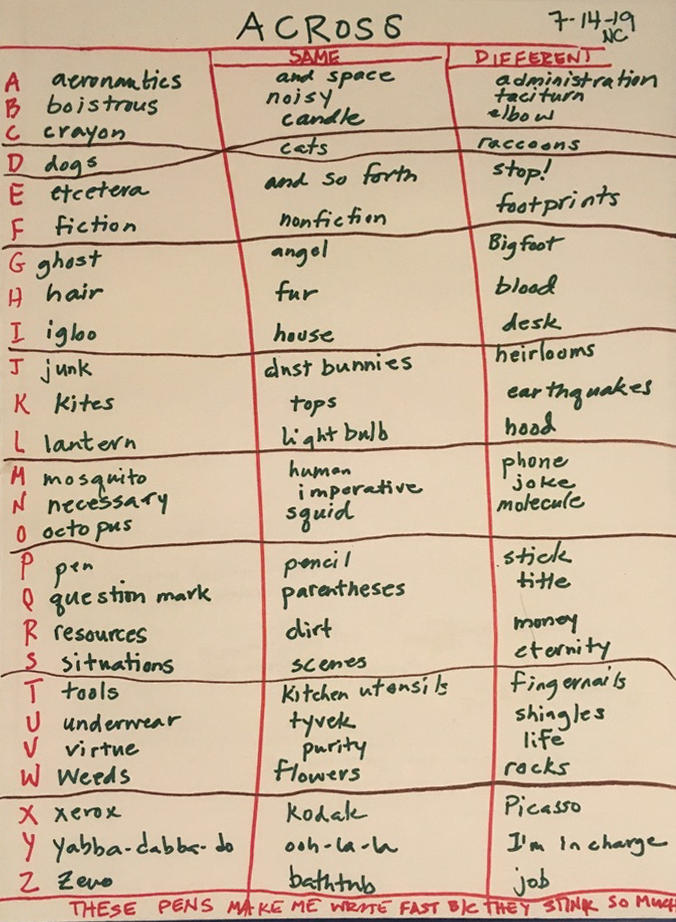 ACROSS 7-14-19
NC
SAME DIFFERENT
A aeronautics and space administration
B boistrous noisy taciturn
C crayon candle elbow
D dogs cats raccoons
E etcetera and so forth stop!
F fiction nonfiction footprints
G ghost angel Bigfoot
H hair fur blood
I igloo house desk
J junk dust bunnies heirlooms
K kites tops earthquakes
L lantern light bulb hood
M mosquito human phone
N necessary imperative joke
O octopus squid molecule
P pen pencil stick
Q question mark parentheses title
R resources dirt money
S situations scenes eternity
T tools kitchen utensils fingernails
U underwear tyvek shingles
V virtue purity life
W Weeds flowers rocks
X xerox Kodak Picasso
Y Yabba-dabba-do ooh-la-la I'm in charge
Z Zeno bathtub job
THESE PENS MAKE ME WRITE FAST B/C THEY STINK SO MUCH